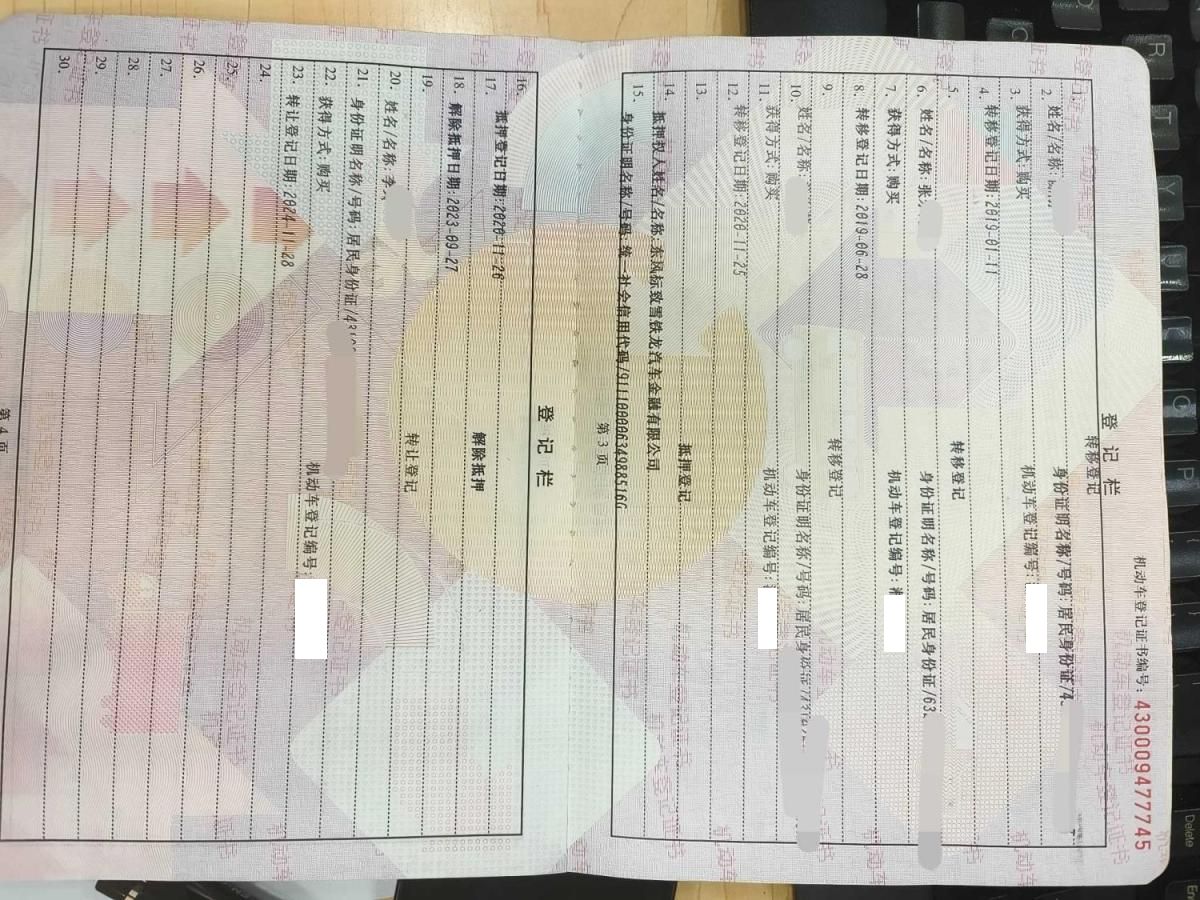 机动车登记证书编号: 430009477745
登记栏
1. 转移登记
2. 姓名/名称: 身份证明名称/号码: 居民身份证/4
3. 获得方式: 购买 机动车登记编号:
4. 转移登记日期: 2019-01-11
5. 转移登记
6. 姓名/名称: 张 身份证明名称/号码: 居民身份证/63
7. 获得方式: 购买 机动车登记编号: 湘
8. 转移登记日期: 2019-06-28
9. 转移登记
10. 姓名/名称: 身份证明名称/号码: 居民身份证
11. 获得方式: 购买 机动车登记编号:
12. 转移登记日期: 2020-11-25
13. 抵押登记
14. 抵押权人姓名/名称: 东风标致雪铁龙汽车金融有限公司
15. 身份证明名称/号码: 统一社会信用代码/91110000634988516G
第 3 页
登记栏
16.
17. 抵押登记日期: 2020-11-26 解除抵押
18. 解除抵押日期: 2023-09-27
19. 转让登记
20. 姓名/名称: 李
21. 身份证明名称/号码: 居民身份证/43
22. 获得方式: 购买 机动车登记编号:
23. 转让登记日期: 2024-11-28
24.
25.
26.
27.
28.
29.
30.
第 4 页